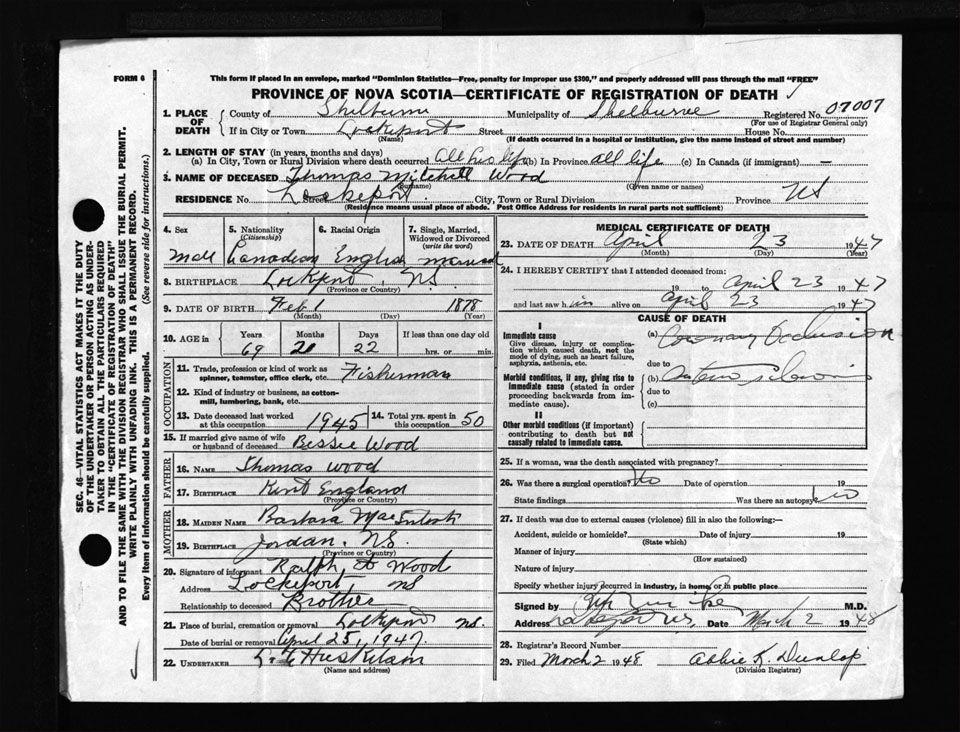 FORM 6
This form if placed in an envelope, marked "Dominion Statistics—Free, penalty for improper use $300," and properly addressed will pass through the mail "FREE"
PROVINCE OF NOVA SCOTIA—CERTIFICATE OF REGISTRATION OF DEATH
SEC. 46—VITAL STATISTICS ACT MAKES IT THE DUTY
OF THE UNDERTAKER OR PERSON ACTING AS UNDER-
TAKER TO OBTAIN ALL THE PARTICULARS REQUIRED
IN THE "CERTIFICATE OF REGISTRATION OF DEATH"
AND TO FILE THE SAME WITH THE DIVISION REGISTRAR WHO SHALL ISSUE THE BURIAL PERMIT.
WRITE PLAINLY WITH UNFADING INK. THIS IS A PERMANENT RECORD.
Every item of information should be carefully supplied. (See reverse side for instructions.)
1. PLACE OF DEATH County of Shelburne Municipality of Shelburne Registered No. 07007
(For use of Registrar General only)
If in City or Town Lockeport Street House No.
(Name) (If death occurred in a hospital or institution, give the name instead of street and number)
2. LENGTH OF STAY (in years, months and days)
(a) In City, Town or Rural Division where death occurred All his life (b) In Province all life (c) In Canada (if immigrant) —
3. NAME OF DECEASED Thomas Mitchell Wood
(Surname) (Given name or names)
RESIDENCE No. Street Lockeport City, Town or Rural Division Province NS
(Residence means usual place of abode. Post Office Address for residents in rural parts not sufficient)
4. Sex 5. Nationality (Citizenship) 6. Racial Origin 7. Single, Married, Widowed or Divorced (write the word)
Male Canadian English married
8. BIRTHPLACE Lockeport, NS.
(Province or Country)
9. DATE OF BIRTH Feb 1 1878
(Month) (Day) (Year)
10. AGE in Years Months Days If less than one day old
69 22 hrs. or min.
OCCUPATION
11. Trade, profession or kind of work as spinner, teamster, office clerk, etc. Fisherman
12. Kind of industry or business, as cotton-mill, lumbering, bank, etc.
13. Date deceased last worked at this occupation 1945 14. Total yrs. spent in this occupation 50
15. If married give name of wife or husband of deceased Bessie Wood
FATHER
16. NAME Thomas Wood
17. BIRTHPLACE Kent England
(Province or Country)
MOTHER
18. MAIDEN NAME Barbara MacIntosh
19. BIRTHPLACE Jordan, N.S.
(Province or Country)
20. Signature of informant Ralph Wood
Address Lockeport, NS
Relationship to deceased Brother
21. Place of burial, cremation or removal Lockeport NS.
Date of burial or removal April 25, 1947.
22. UNDERTAKER Huskilson
(Name and address)
MEDICAL CERTIFICATE OF DEATH
23. DATE OF DEATH April 23 1947
(Month) (Day) (Year)
24. I HEREBY CERTIFY that I attended deceased from:
19 to April 23 1947
and last saw him alive on April 23 1947
CAUSE OF DEATH
I
Immediate cause
Give disease, injury or complication which caused death, not the mode of dying, such as heart failure, asphyxia, asthenia, etc.
(a) Coronary Occlusion
due to
Morbid conditions, if any, giving rise to immediate cause (stated in order proceeding backwards from immediate cause).
(b)
due to
(c)
II
Other morbid conditions (if important) contributing to death but not causally related to immediate cause.
25. If a woman, was the death associated with pregnancy?
26. Was there a surgical operation? No Date of operation 19
State findings Was there an autopsy? No
27. If death was due to external causes (violence) fill in also the following:—
Accident, suicide or homicide? Date of injury 19
(State which)
Manner of injury
(How sustained)
Nature of injury
Specify whether injury occurred in industry, in home, or in public place
Signed by M.D.
Address Date March 2 1948
28. Registrar's Record Number
29. Filed March 2 1948 Abbie K. Dunlop
(Division Registrar)